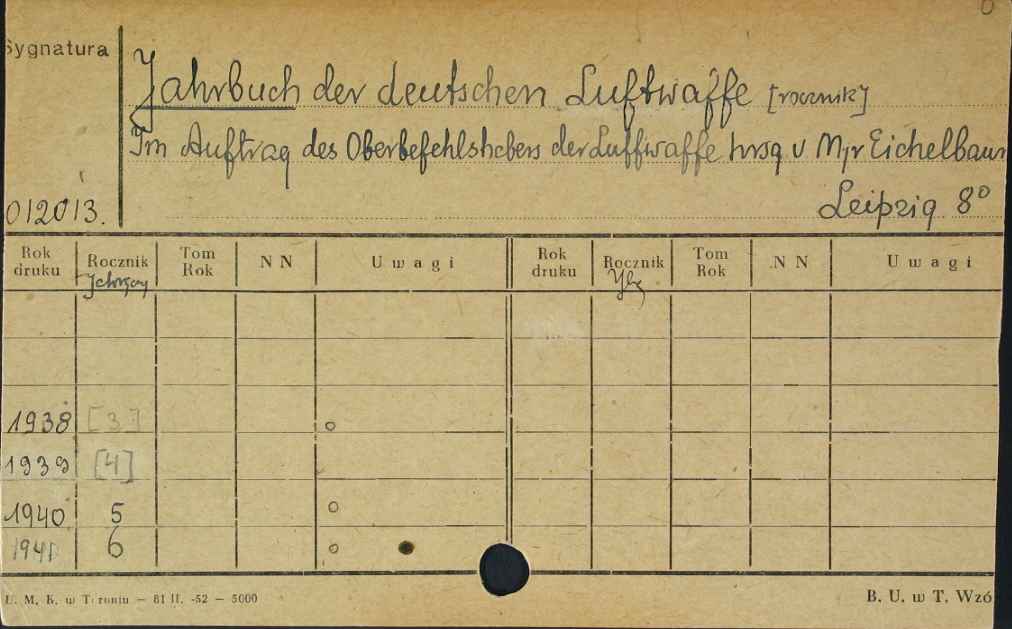 0
Sygnatura
Jahrbuch der deutschen Luftwaffe [rocznik]
Im Auftrag des Oberbefehlshabers der Luftwaffe hrsg v Mjr Eichelbaum
Leipzig 8°
012013.
Rok druku Rocznik Tom Rok NN Uwagi Rok druku Rocznik Tom Rok NN Uwagi
1938 [3] o
1939 [4]
1940 5 o
1941 6 o
U. M. K. w Toruniu — 81 II. -52 — 5000 B. U. w T. Wzó